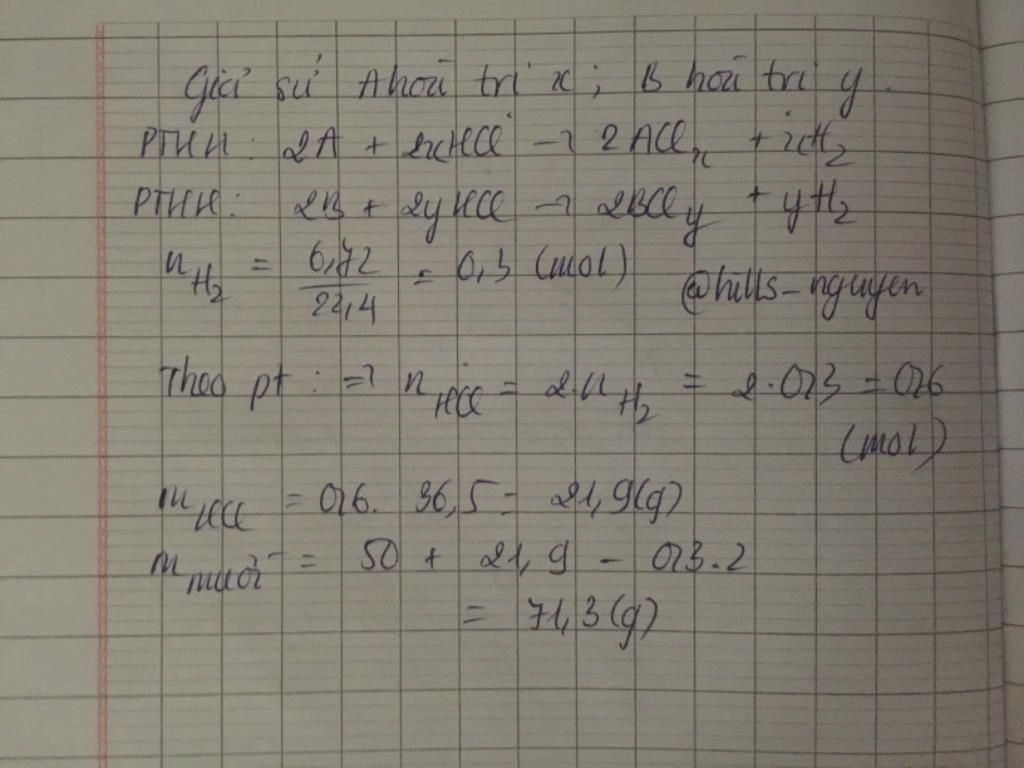 Giả sử A hoá trị x; B hoá trị y.
PTHH: 2A + 2xHCl → 2AClₓ + xH₂
PTHH: 2B + 2yHCl → 2BCly + yH₂
nH₂ = 6,72/22,4 = 0,3 (mol)
@hills_nguyen
Theo pt: => nHCl = 2.nH₂ = 2.0,3 = 0,6
(mol)
mHCl = 0,6. 36,5 = 21,9(g)
mmuối = 50 + 21,9 - 0,3.2
= 71,3(g)